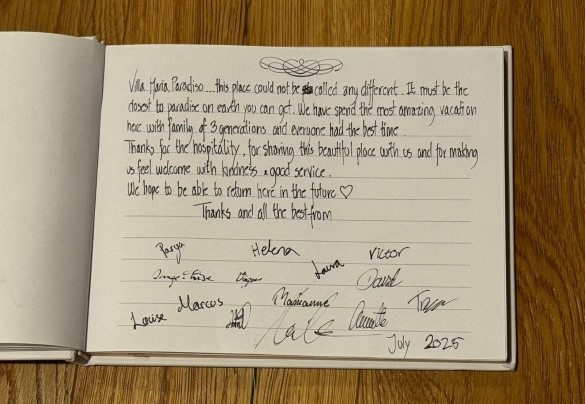 Villa Maria Paradiso...this place could not be called any different. It must be the
closest to paradise on earth you can get. We have spend the most amazing vacation
here with family of 3 generations and everyone had the best time.
Thanks for the hospitality, for sharing this beautiful place with us and for making
us feel welcome with kindness & good service.
We hope to be able to return here in the future ♡
Thanks and all the best from
Helena Victor
Laura David
Marcus Marianne
Louise Annette
July 2025